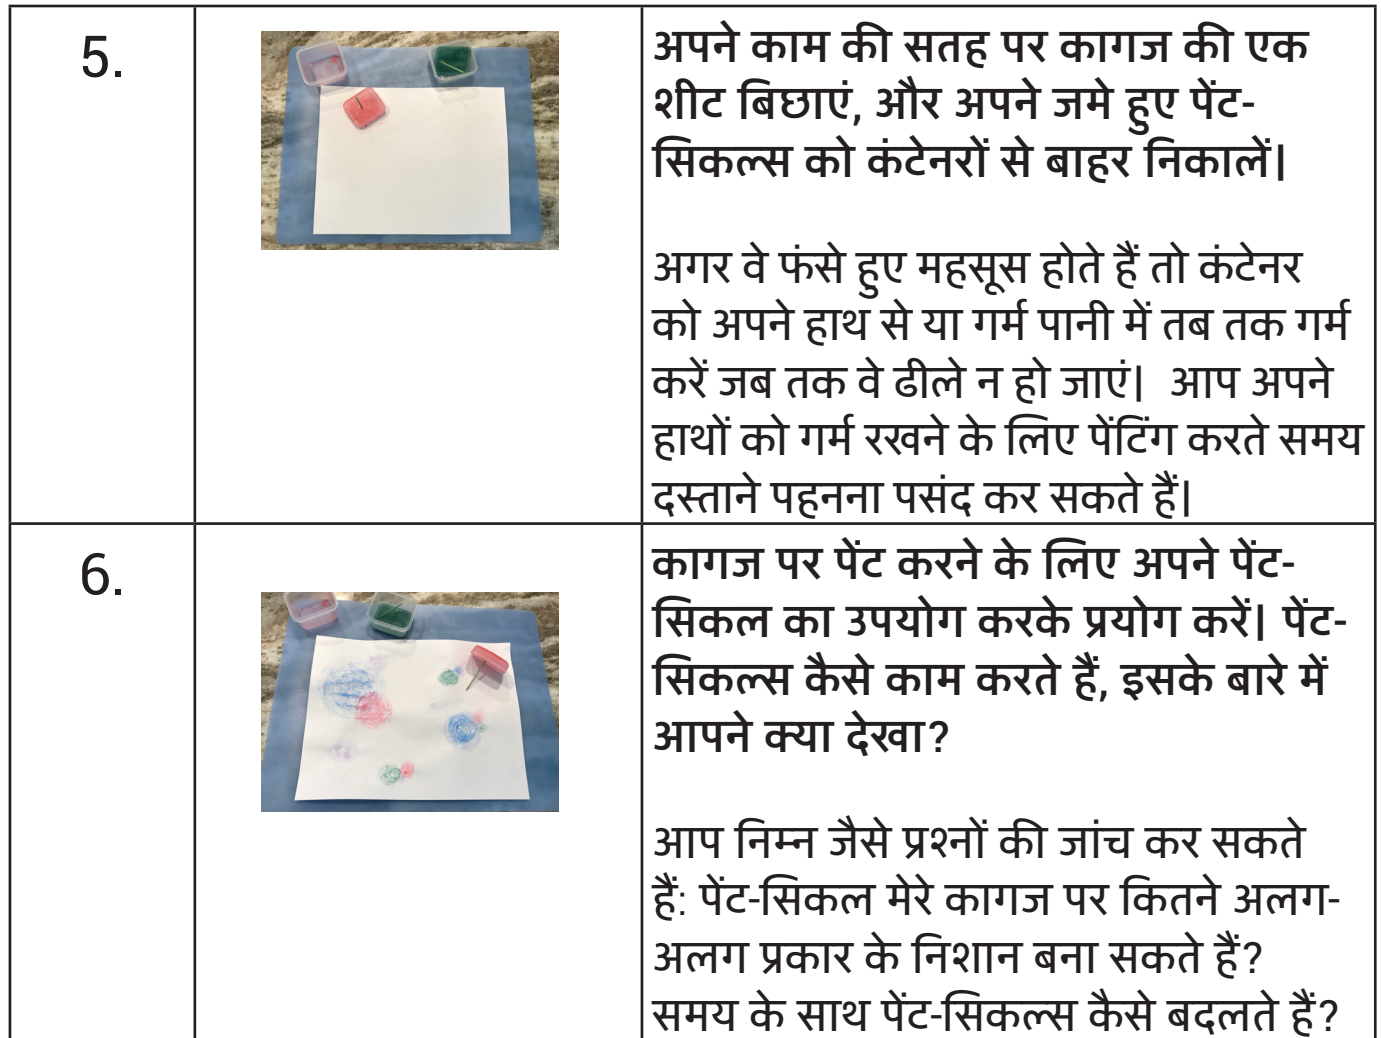 5.
अपने काम की सतह पर कागज की एक
शीट बिछाएं, और अपने जमे हुए पेंट-
सिकल्स को कंटेनरों से बाहर निकालें|
अगर वे फंसे हुए महसूस होते हैं तो कंटेनर
को अपने हाथ से या गर्म पानी में तब तक गर्म
करें जब तक वे ढीले न हो जाएं|  आप अपने
हाथों को गर्म रखने के लिए पेंटिंग करते समय
दस्ताने पहनना पसंद कर सकते हैं|
6.
कागज पर पेंट करने के लिए अपने पेंट-
सिकल का उपयोग करके प्रयोग करें| पेंट-
सिकल्स कैसे काम करते हैं, इसके बारे में
आपने क्या देखा?
आप निम्न जैसे प्रश्नों की जांच कर सकते
हैं: पेंट-सिकल मेरे कागज पर कितने अलग-
अलग प्रकार के निशान बना सकते हैं?
समय के साथ पेंट-सिकल्स कैसे बदलते हैं?